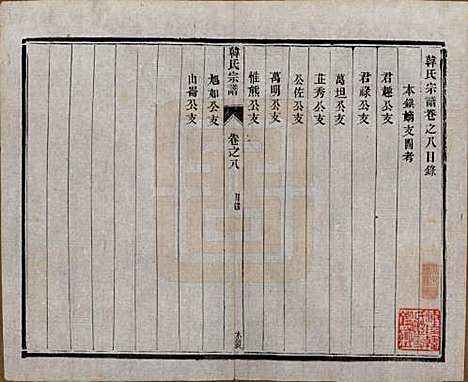 韓氏宗譜卷之八目錄
本鎮嫡支圖考
君禄公支
萬坦公支
韮秀公支
公佐公支
萬明公支
惟熊公支
韓氏宗譜
卷之八
目錄
旭如公支
山崙公支